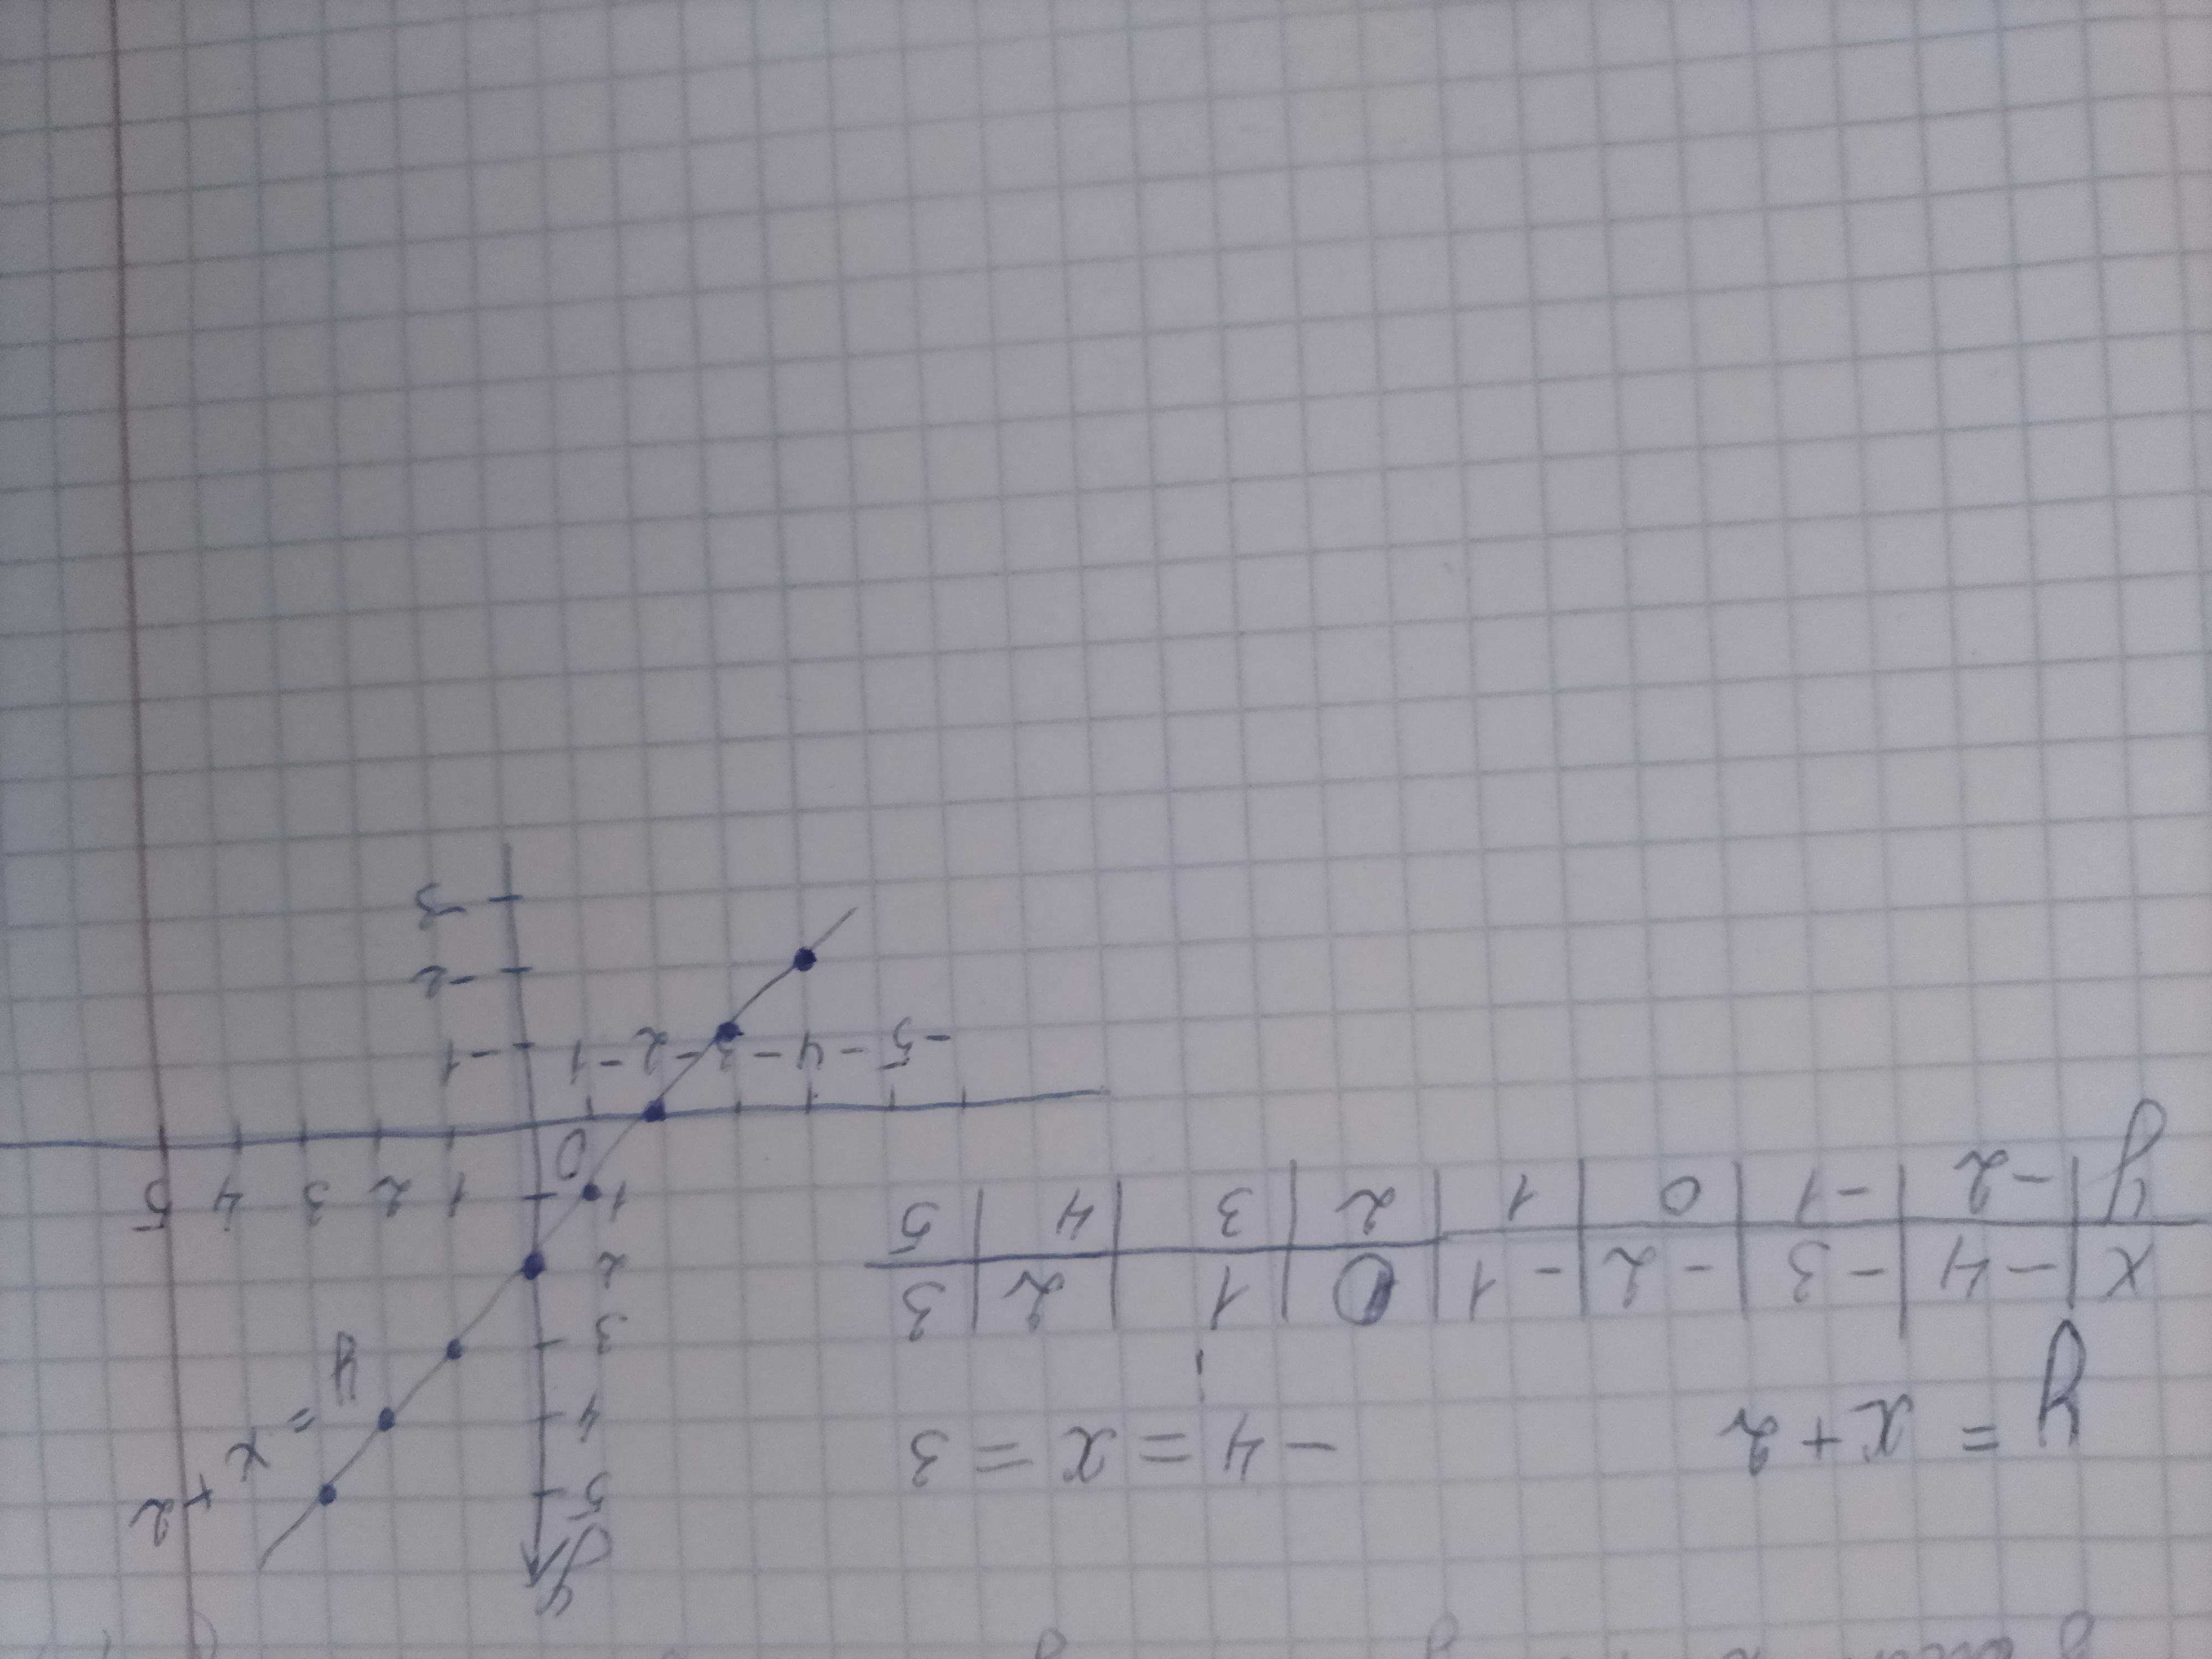 y = x + 2
-4 = x = 3
x | -4 | -3 | -2 | -1 | 0 | 1 | 2 | 3
y | -2 | -1 | 0 | 1 | 2 | 3 | 4 | 5
y
5
4
3
2
1
y = x + 2
1 2 3 4 5
0
-5 -4 -3 -2 -1
-1
-2
-3